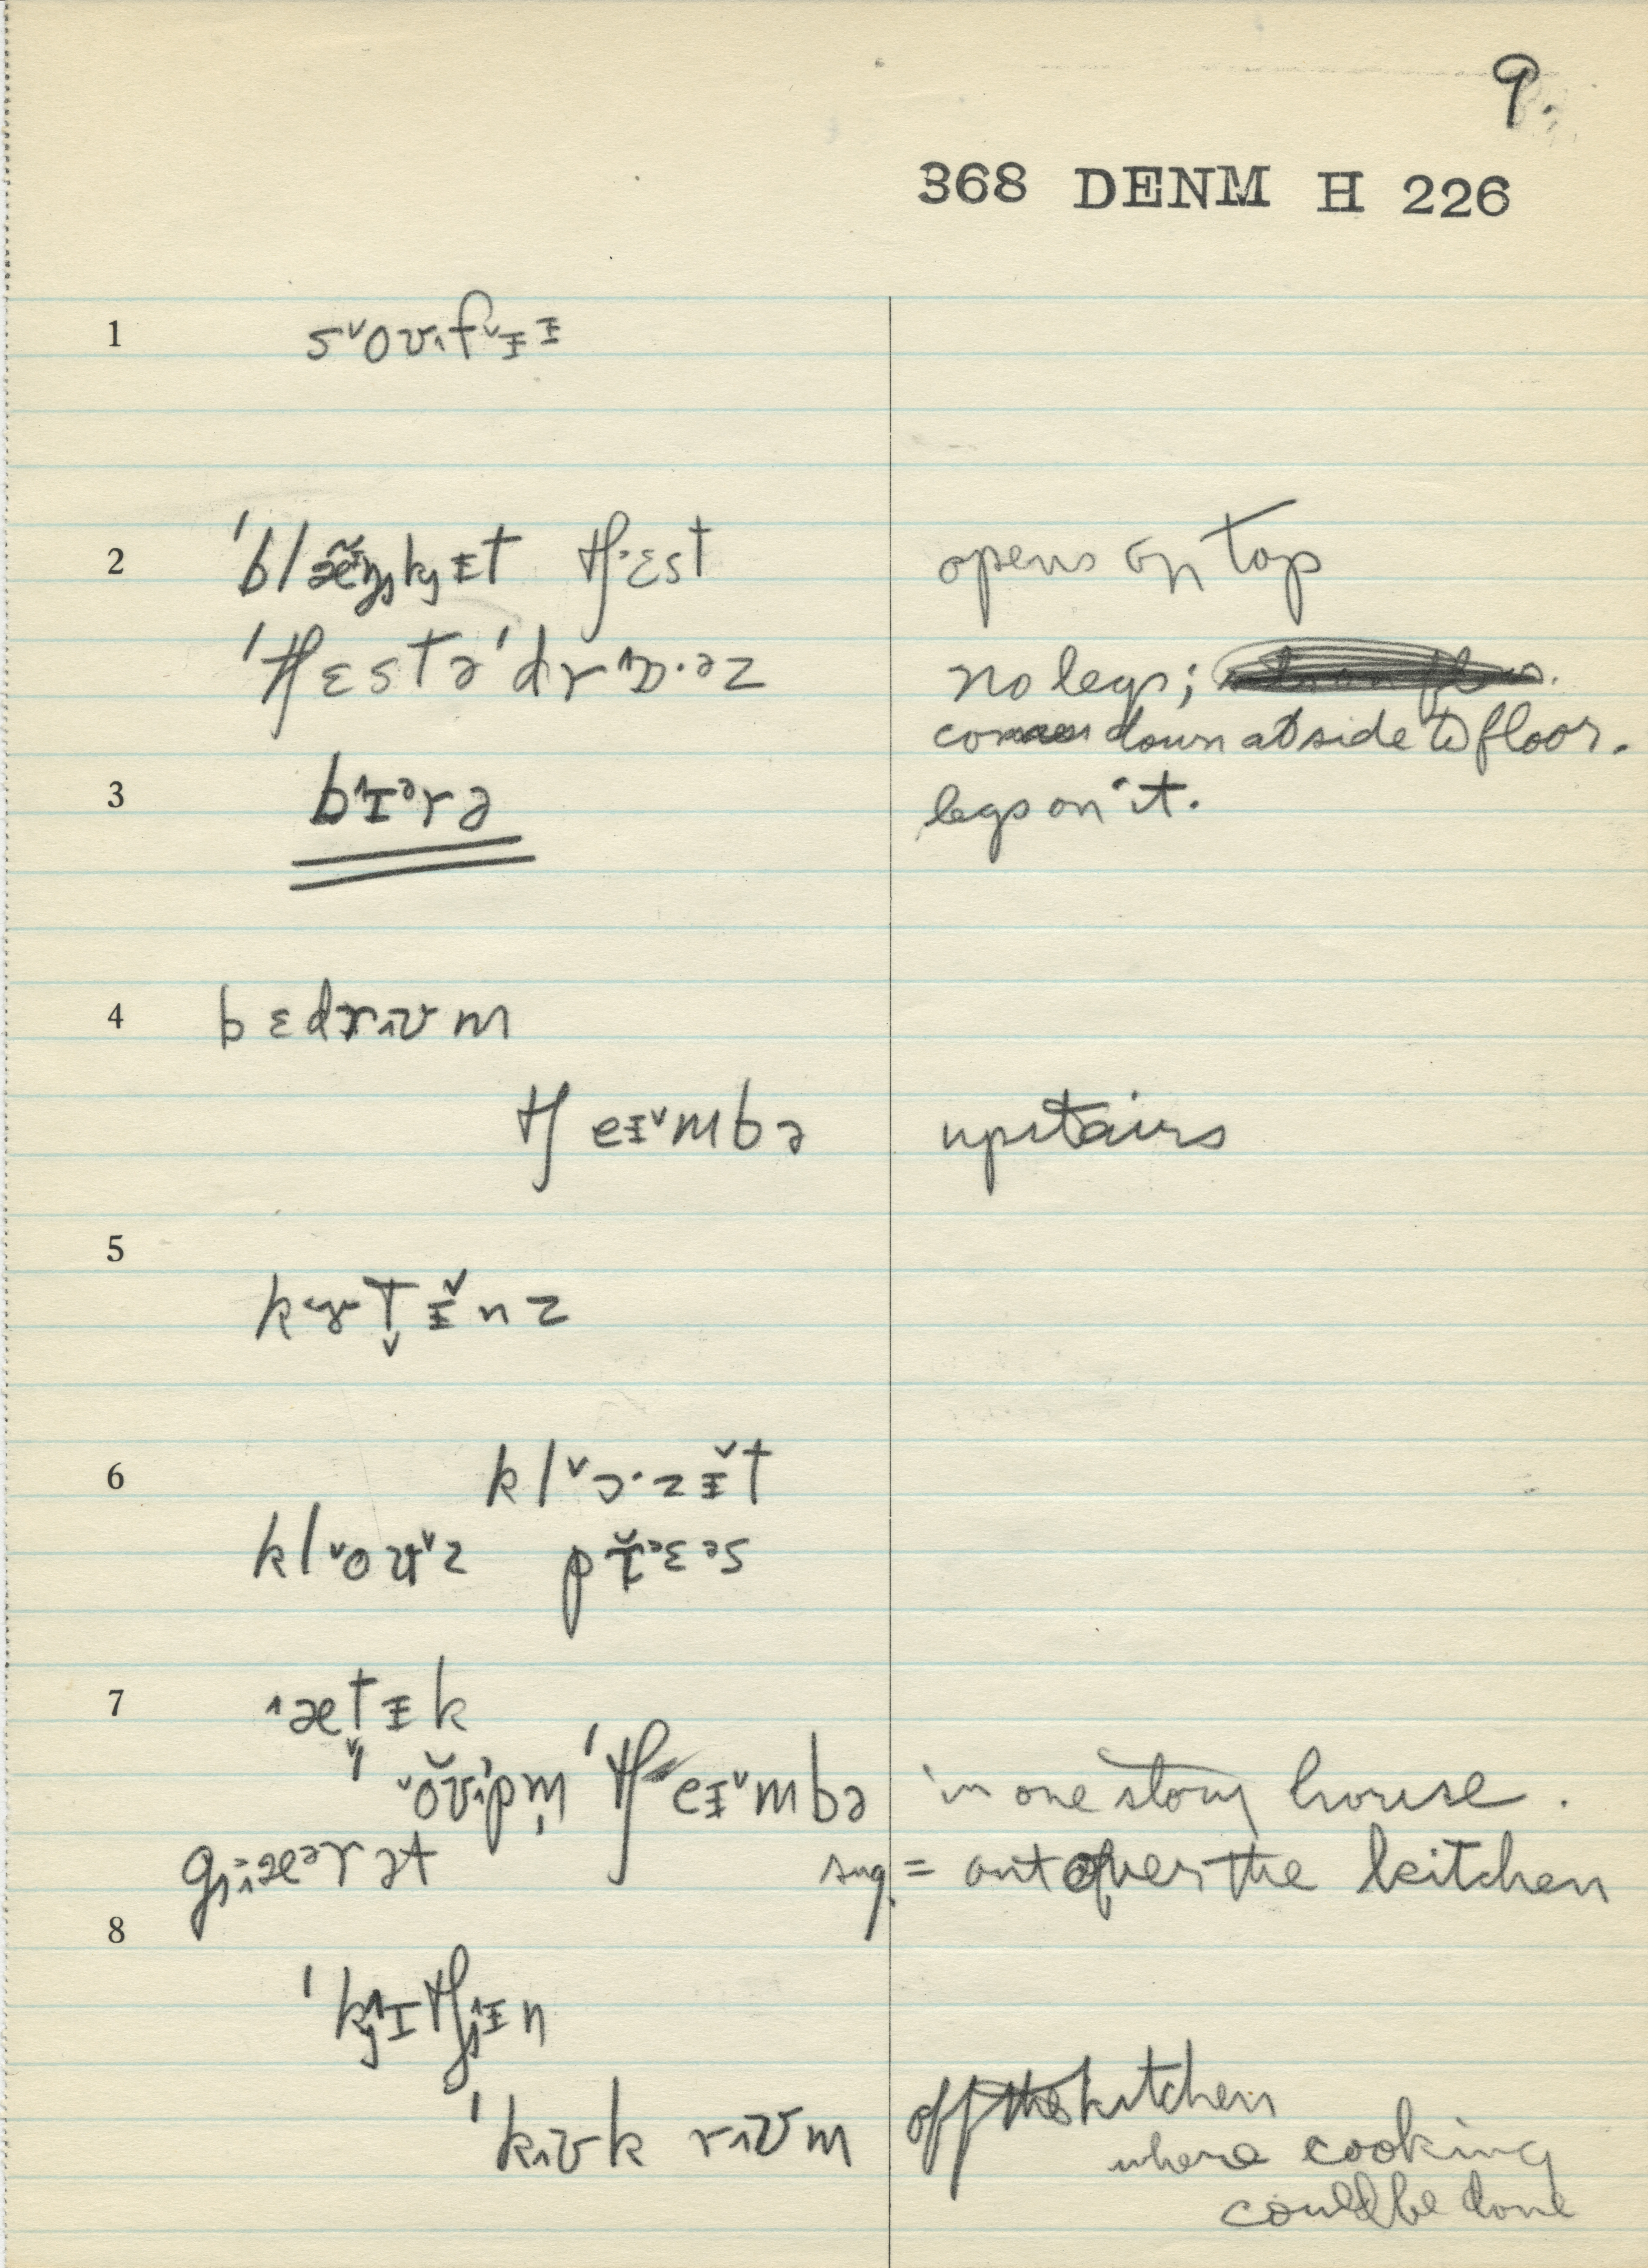 9.
368 DENM H 226
1 s˅oʊ˄f˅ɪɪ
2 ˈblæ̃ŋkɪt tʃ·ɛst opens on top
ˈtʃɛstəˈdrɔ˄·əz no legs;
comes down at side to floor.
3 b˄ɪᵊrə legs on it.
4 bɛdrʊ˄m
tʃeɪ˅mbə upstairs
5
kɜt̬ɪ̌nz
6 kl˅ɔ·zɪ̌t
kl˅oʊ˅z prɛəs
7 ˄ætɪk
˅oʊpm̩ ˈtʃeɪ˅mbə in one story house.
gæərət sug. = out over the kitchen
8
ˈkɪtʃɪn
ˈkʊ˄k rʊ˄m off the kitchen
where cooking
could be done